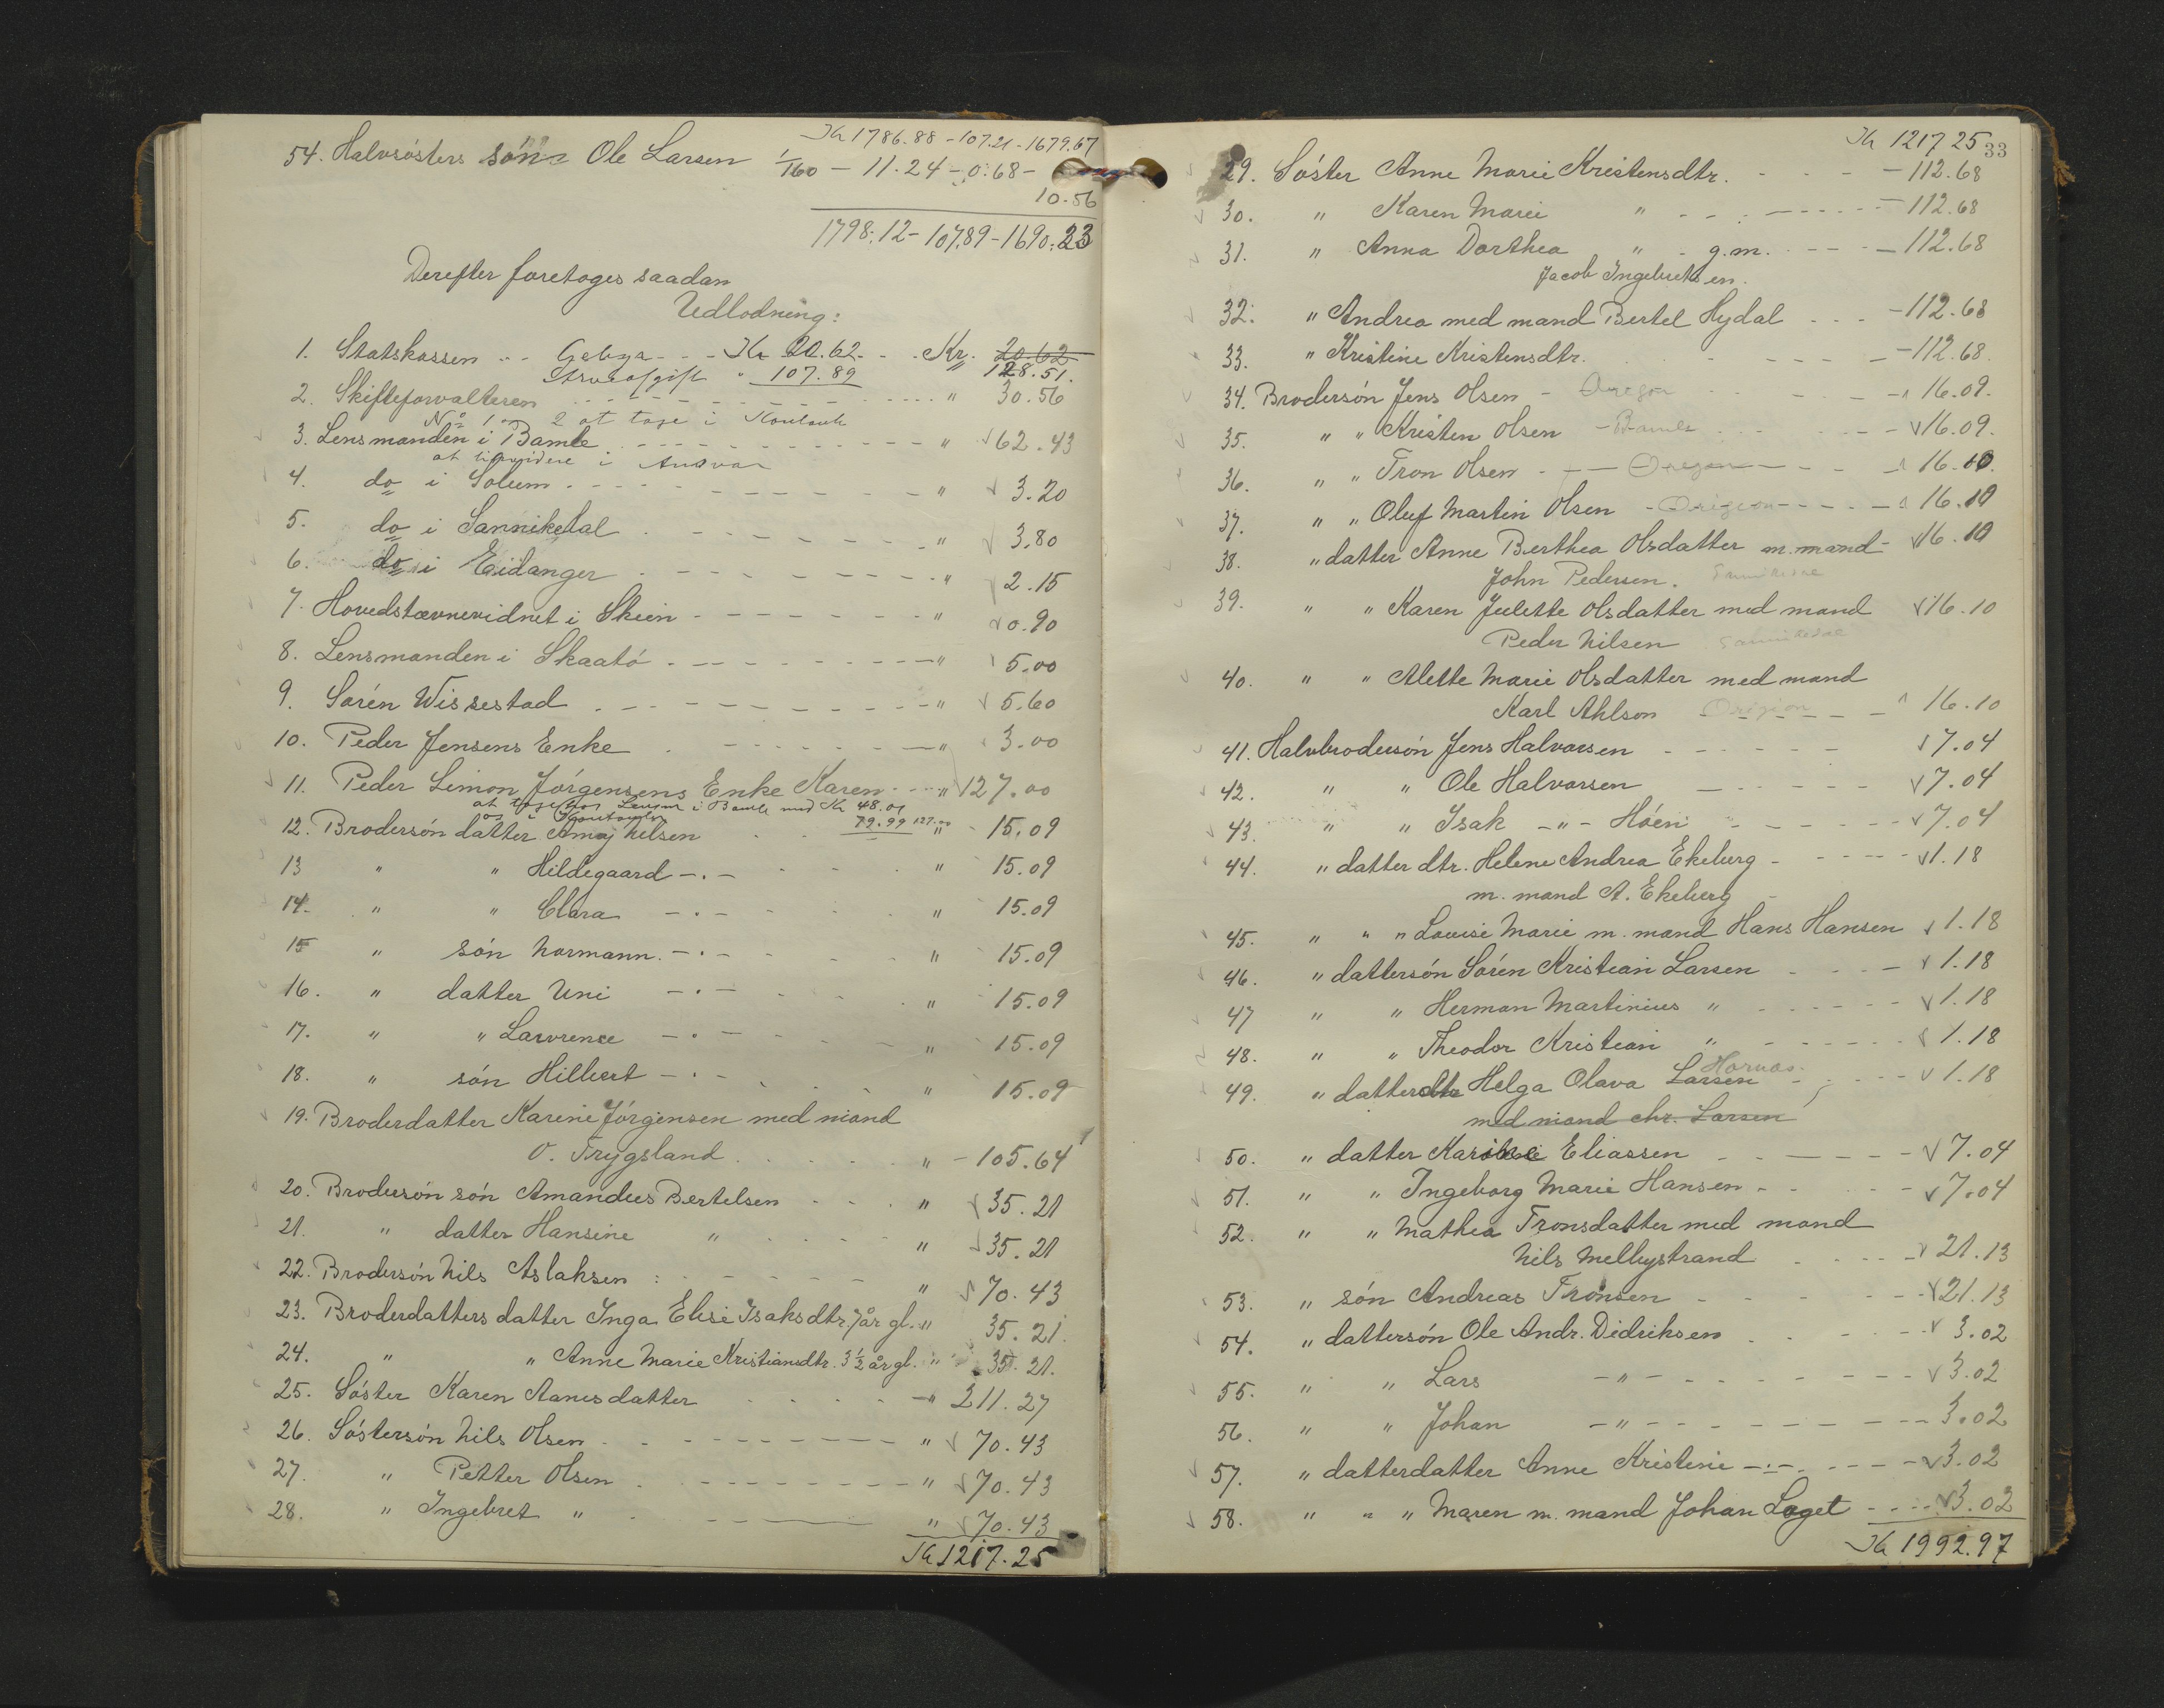 Kr 1786.88 - 107.21 - 1679.67
54. Halvsøsters søn Ole Larsen 1/160 - 11.24 - 0.68 -
10.56
1798.12 - 107.89 - 1690.23
Derefter foretoges saadan
Udlodning:
1. Statskassen Gebyr - - - Kr 20.62 - - Kr. 20.62
Arveafgift " 107.89 " 128.51.
2. Skifteforvalteren " 30.56
No 1 og 2 at tage i Kontant
3. Lensmanden i Bamle " 62.43
at liqvidere i Ansvar
4. do i Solum " 3.20
5. do i Sannikedal " 3.80
6. do i Eidanger " 2.15
7. Hovedstævnevidnet i Skien " 0.90
8. Lensmanden i Skaatø " 5.00
9. Sørén Wissestad " 5.60
10. Peder Jensens Enke " 3.00
11. Peder Simon Jørgensens Enke Karen " 127.00
at tage hos Lensm i Bamle med Kr 48.01
og i Kontanter 79.99 127.00
12. Brodersøn datter Amaj Nelsen " 15.09
13 " " Hildegaard -"- " 15.09
14. " " Clara -"- " 15.09
15 " søn Normann. -"- " 15.09
16. " datter Uni -"- " 15.09
17. " " Larvrence -"- " 15.09
18. " søn Hilbert -"- " 15.09
19. Broderdatter Karine Jørgensen med mand
O. Trygsland " - 105.64
20. Brodersøn søn Amandus Bertelsen " 35.21
21. " datter Hansine " " 35.21
22. Brodersøn Nils Aslaksen " 70.43
23. Broderdatters datter Inga Elise Isaksdtr. 7 år gl. " 35.21.
24. " " Anne Marie Kristiansdtr. 3½ år gl. " 35.21.
25. Søster Karen Aanesdatter " 211.27
26. Søstersøn Nils Olsen " 70.43
27. " Petter Olsen " 70.43
28. " Ingebret " " 70.43
Kr 1217.25
Kr 1217 25 33
29. Søster Anne Marie Kristensdtr. - 112.68
30. " Karen Marie " - 112.68
31. " Anna Dorthea " g.m. - 112.68
Jacob Ingebretsen.
32. " Andrea med mand Bertel Hydal - 112.68
33. " Kristine Kristensdtr. - 112.68.
34. Brodersøn Jens Olsen - Oregon - 16.09.
35. " " Kristen Olsen - Bamle 16.09.
36. " " Tron Olsen - Oregon 16.10.
37. " " Oluf Martin Olsen - Origion 16.10
38. " datter Anne Berthea Olsdatter m. mand 16.10
John Pedersen. Sannikedal
39. " " Karen Julette Olsdatter med mand 16.10
Peder Nilsen Sannikedal
40. " " Alette Marie Olsdatter med mand
Karl Ahlson Origion 16.10
41. Halvbrodersøn Jens Halvorsen 7.04
42. " " Ole Halvorsen 7.04
43. " " Isak -"- Høén 7.04
44. " datter dtr. Helene Andrea Ekeberg 1.18
m. mand A. Ekeberg
45. " " " Lovise Marie m. mand Hans Hansen 1.18
46. " dattersøn Søren Kristian Larsen 1.18
47 " " Herman Martinius " 1.18
48. " " Theodor Kristian " 1.18
Hornås
49. " datterdtr Helga Olava Larsen 1.18
med mand chr. Larsen
50. " datter Karoline Eliassen 7.04
51. " " Ingeborg Marie Hansen 7.04
52. " " Mathea Tronsdatter med mand
Nils Mellystrand 21.13
53. " søn Andreas Tronsen 21.13
54. " dattersøn Ole Andr. Didriksen 3.02
55. " " Lars -"- 3.02
56. " " Johan -"- 3.02
57. " datterdatter Anne Kristine -"- 3.02
58. " " " Maren m. mand Johan Løget 3.02
Kr 1992.97